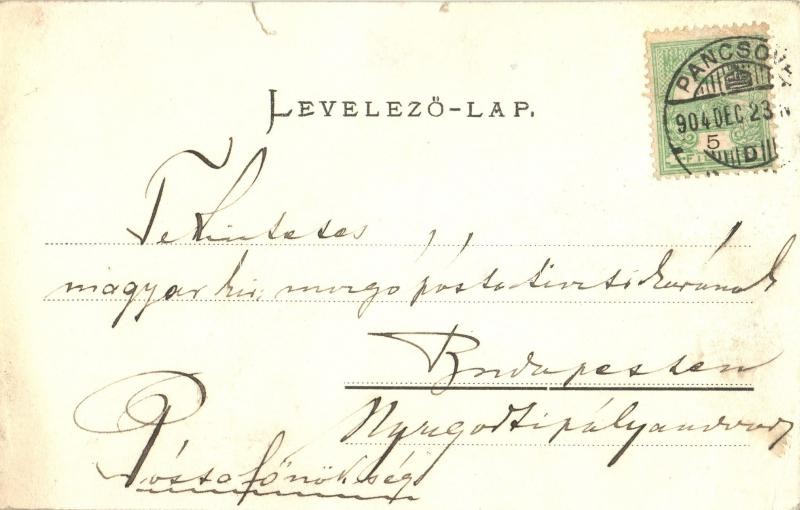 LEVELEZŐ-LAP.
PANCSOVA
904 DEC 23 N
5
D
Tekintetes
magyar kir. mozgó pósta tiszti karának
Budapesten
Nyugodti pályaudvar
Póstafőnökség